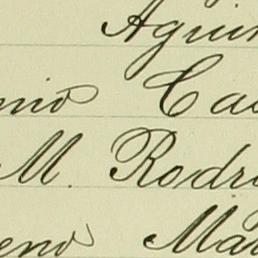 Aguir
nio Cas
M. Rodri
eno Mar